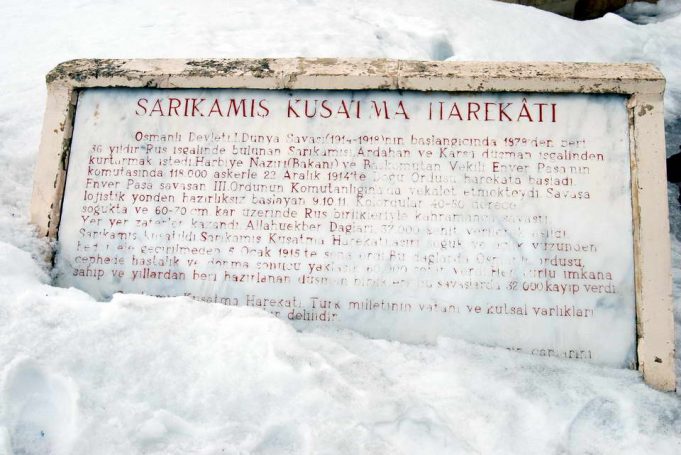 SARIKAMIŞ KUŞATMA HAREKÂTI
Osmanlı Devleti I.Dünya Savaşı(1914-1918)nın başlangıcında 1878'den beri
36 yıldır Rus işgalinde bulunan Sarıkamış, Ardahan ve Kars'ı düşman işgalinden
kurtarmak istedi. Harbiye Nazırı(Bakanı) ve Başkomutan Vekili Enver Paşa'nın
komutasında 118.000 askerle 22 Aralık 1914'te Doğu Ordusu harekâta başladı.
Enver Paşa savaşan III.Ordunun Komutanlığına da vekalet etmekteydi. Savaşa
lojistik yönden hazırlıksız başlayan 9.10.11 Kolordular 40-50 derece
soğukta ve 60-70 cm kar üzerinde Rus birlikleriyle kahramanca savaştı.
Yer yer zaferler kazandı. Allahuekber Dağları 37.000 şehit
Sarıkamış kuşatıldı. Sarıkamış Kuşatma Harekâtı aşırı soğuk ve açlık yüzünden
geçirilmeden 5 Ocak 1915'te sona erdi. Bu dağlarda Osmanlı ordusu,
cephede hastalık ve donma sonucu 60.000 şehit verdi. Her türlü imkana
sahip ve yıllardan beri hazırlanan düşman birlikleri bu savaşlarda 32 000 kayıp verdi.
Sarıkamış Kuşatma Harekâtı Türk milletinin vatanı ve kutsal varlıkları
delilidir.